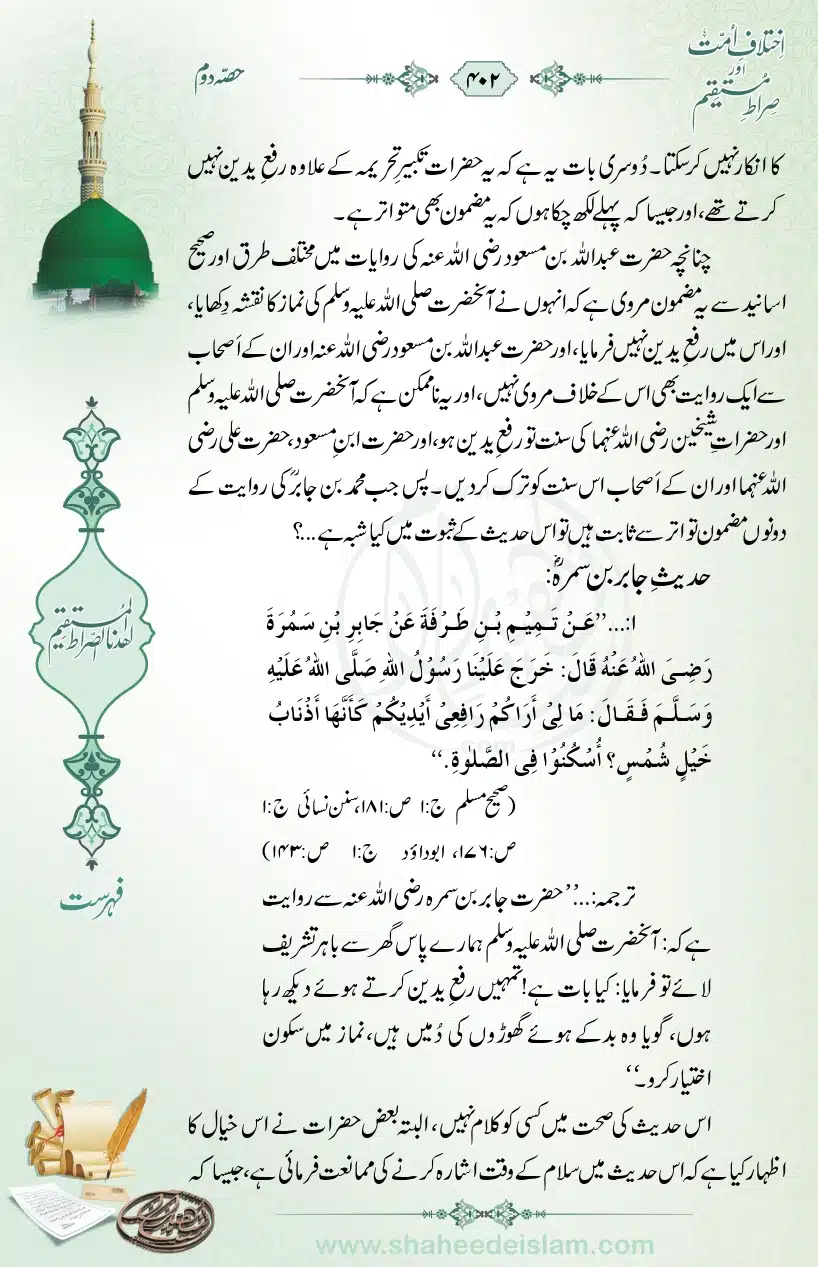 اِختلافِ اُمّت
اور
صِراطِ مُستقیم
۴۰۲
حصّہ دوم
کا انکار نہیں کرسکتا۔ دُوسری بات یہ ہے کہ یہ حضرات تکبیرِ تحریمہ کے علاوہ رفعِ یدین نہیں
کرتے تھے، اور جیسا کہ پہلے لکھ چکا ہوں کہ یہ مضمون بھی متواتر ہے۔
چنانچہ حضرت عبداللہ بن مسعود رضی اللہ عنہ کی روایات میں مختلف طرق اور صحیح
اسانید سے یہ مضمون مروی ہے کہ انہوں نے آنحضرت صلی اللہ علیہ وسلم کی نماز کا نقشہ دِکھایا،
اور اس میں رفعِ یدین نہیں فرمایا، اور حضرت عبداللہ بن مسعود رضی اللہ عنہ اور ان کے اَصحاب
سے ایک روایت بھی اس کے خلاف مروی نہیں، اور یہ ناممکن ہے کہ آنحضرت صلی اللہ علیہ وسلم
اور حضراتِ شیخین رضی اللہ عنہما کی سنت تو رفعِ یدین ہو، اور حضرت ابنِ مسعود، حضرت علی رضی
اللہ عنہما اور ان کے اَصحاب اس سنت کو ترک کردیں۔ پس جب محمد بن جابرؒ کی روایت کے
دونوں مضمون تواتر سے ثابت ہیں تو اس حدیث کے ثبوت میں کیا شبہ ہے...؟
حدیثِ جابر بن سمرہؓ:
ا:...’’عَنْ تَمِيْمِ بْنِ طَرْفَةَ عَنْ جَابِرِ بْنِ سَمُرَةَ
رَضِیَ اللهُ عَنْهُ قَالَ: خَرَجَ عَلَيْنَا رَسُوْلُ اللهِ صَلَّى اللهُ عَلَيْهِ
وَسَلَّمَ فَقَالَ: مَا لِیْ أَرَاكُمْ رَافِعِیْ أَيْدِيْكُمْ كَأَنَّهَا أَذْنَابُ
خَيْلٍ شُمْسٍ؟ أُسْكُنُوْا فِی الصَّلوٰةِ.‘‘
(صحیح مسلم ج:۱ ص:۱۸۱، سنن نسائی ج:۱
ص:۱۷۶، ابوداؤد ج:۱ ص:۱۴۳)
ترجمہ:...’’حضرت جابر بن سمرہ رضی اللہ عنہ سے روایت
ہے کہ: آنحضرت صلی اللہ علیہ وسلم ہمارے پاس گھر سے باہر تشریف
لائے تو فرمایا: کیا بات ہے! تمہیں رفعِ یدین کرتے ہوئے دیکھ رہا
ہوں، گویا وہ بدکے ہوئے گھوڑوں کی دُمیں ہیں، نماز میں سکون
اختیار کرو۔‘‘
اس حدیث کی صحت میں کسی کو کلام نہیں، البتہ بعض حضرات نے اس خیال کا
اظہار کیا ہے کہ اس حدیث میں سلام کے وقت اشارہ کرنے کی ممانعت فرمائی ہے، جیسا کہ
اھدنا الصراط المستقیم
فہرست
www.shaheedeislam.com